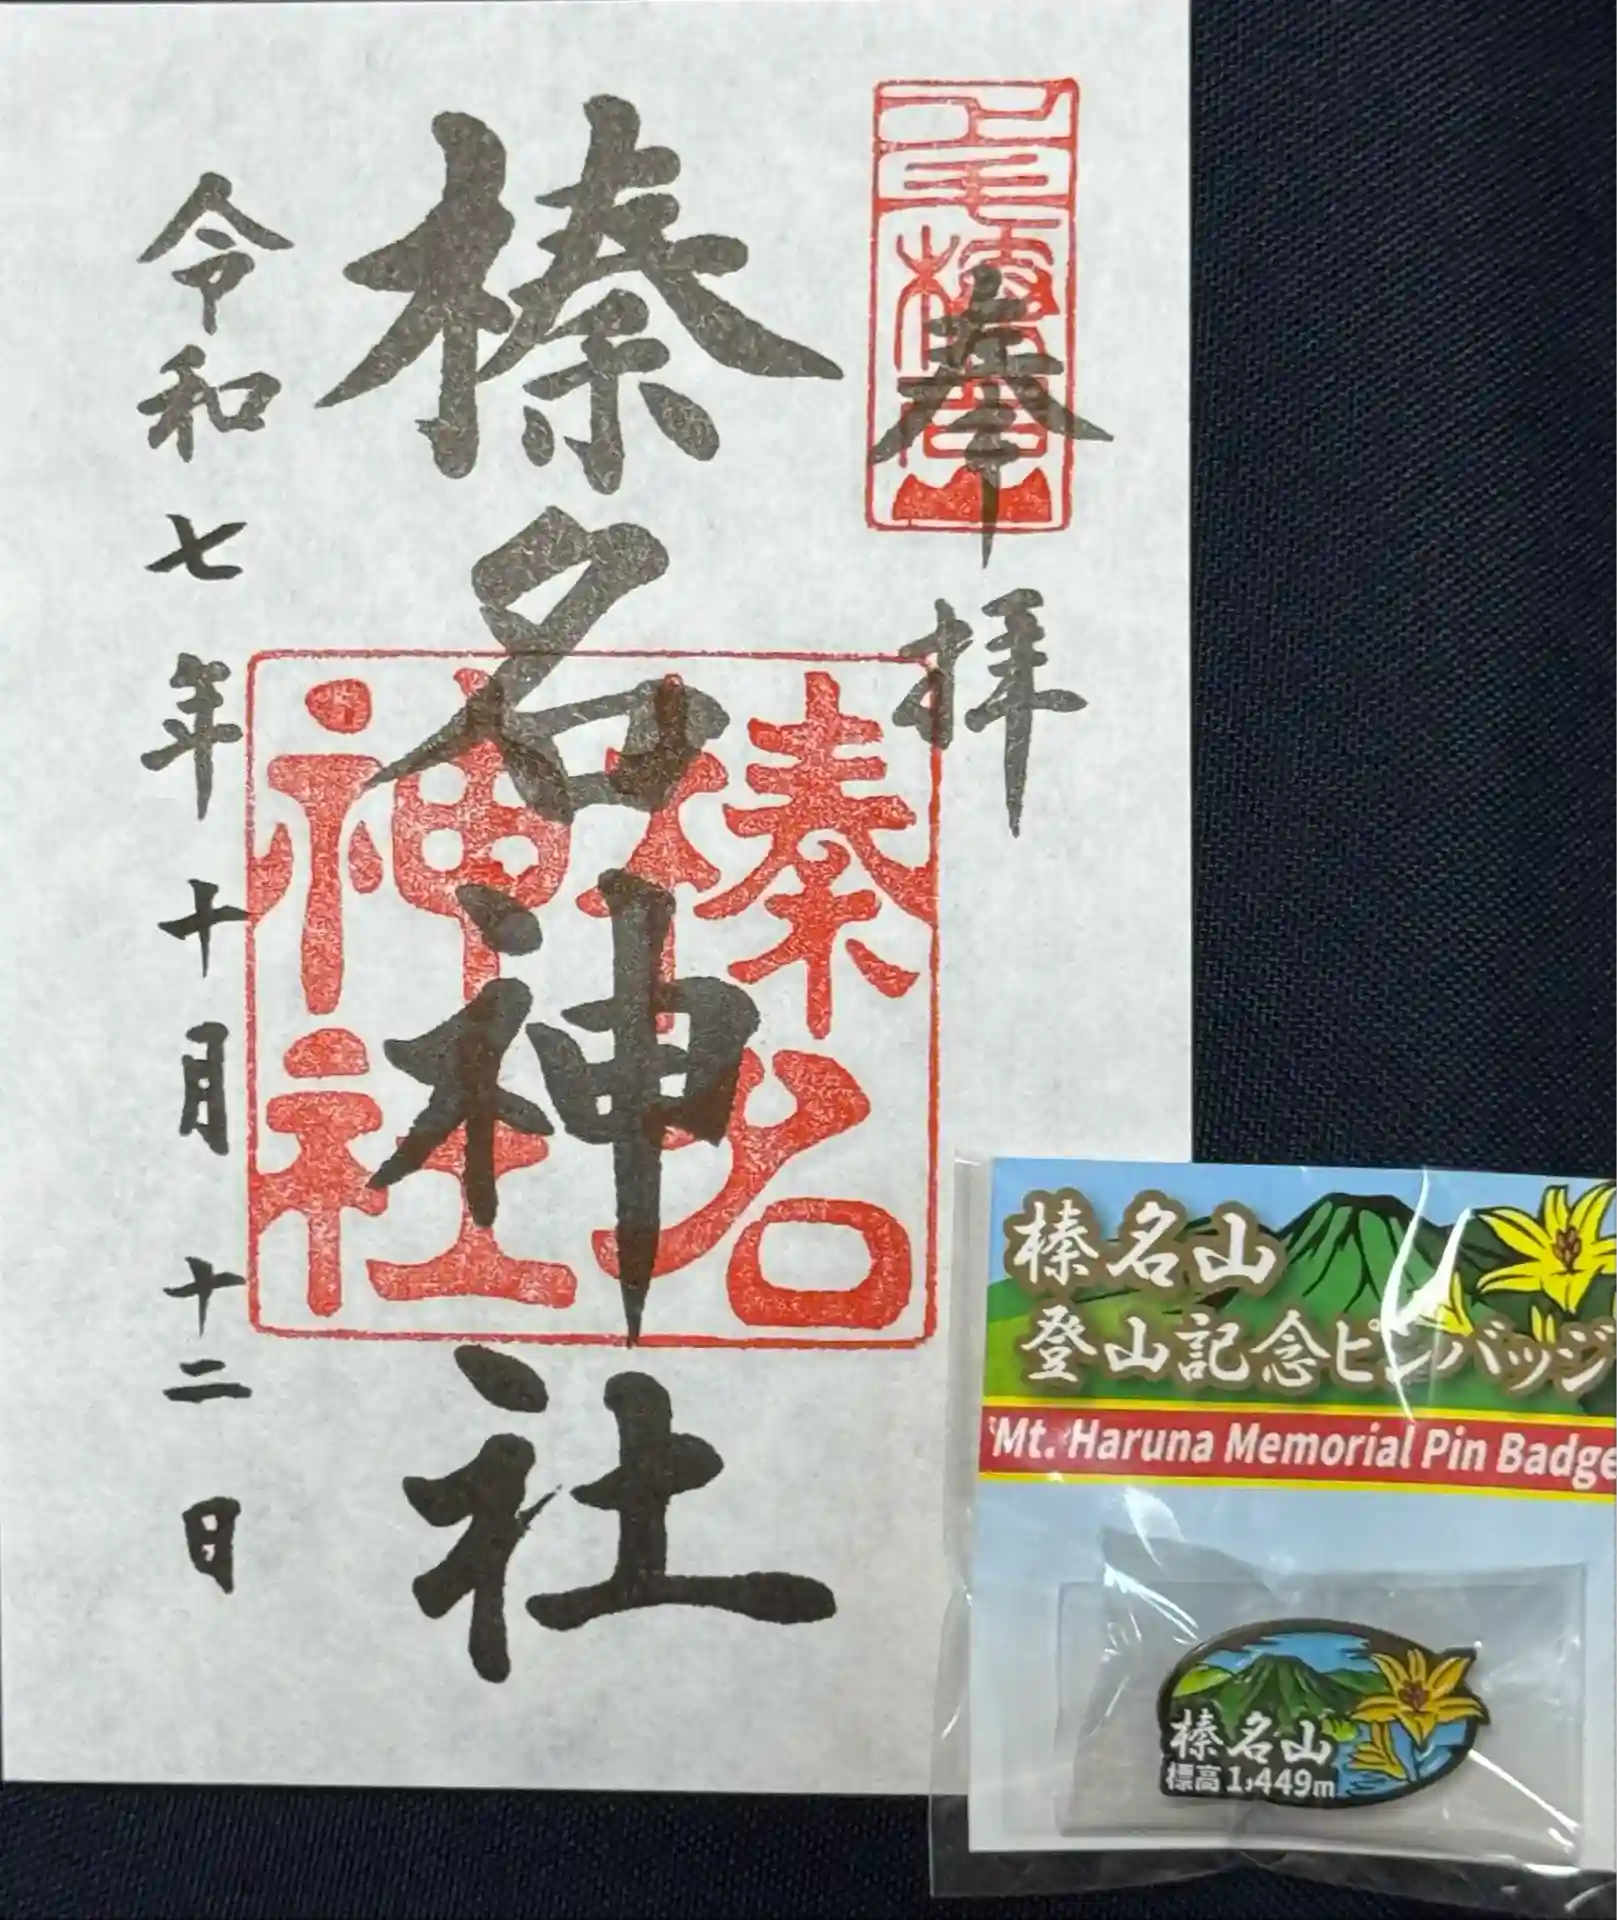 奉拝
榛名神社
榛名
神社
令和七年十月十二日
榛名山
登山記念ピンバッジ
Mt. Haruna Memorial Pin Badge
榛名山
標高1,449m